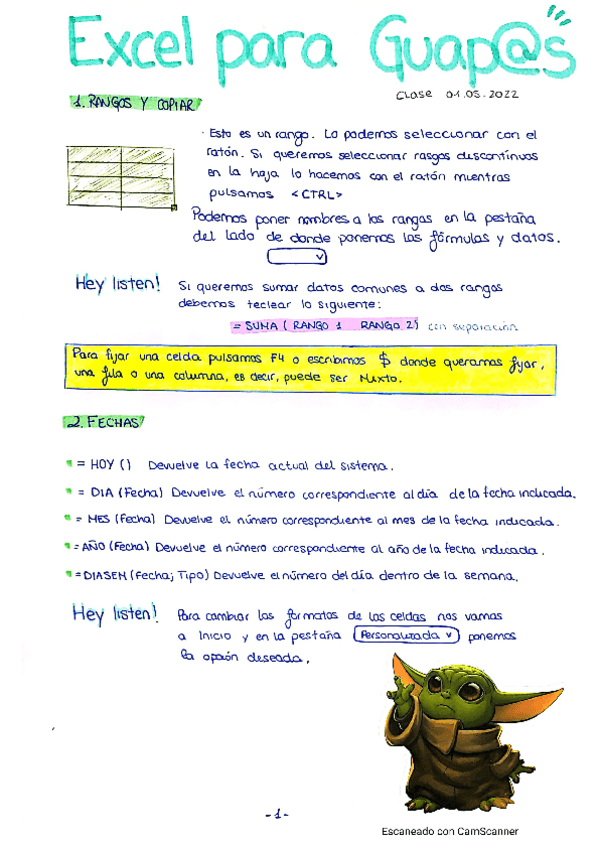 Excel para Guap@s
Clase 01.05.2022
1. RANGOS Y COPIAR
· Esto es un rango. Lo podemos seleccionar con el
ratón. Si queremos seleccionar rasgos discontinuos
en la hoja lo hacemos con el ratón mientras
pulsamos <CTRL>
Podemos poner nombres a los rangas en la pestaña
del lado de donde ponemos las fórmulas y datos.
Hey listen! Si queremos sumar datos comunes a dos rangas
debemos teclear lo siguiente:
= SUMA ( RANGO 1 RANGO 2) con separación
Para fijar una celda pulsamos F4 o escribimos $ donde queramos fijar,
una fila o una columna, es decir, puede ser Mixto.
2. FECHAS
= HOY () Devuelve la fecha actual del sistema.
= DIA (Fecha) Devuelve el número correspondiente al día de la fecha indicada.
= MES (Fecha) Devuelve el número correspondiente al mes de la fecha indicada.
= AÑO (Fecha) Devuelve el número correspondiente al año de la fecha indicada.
= DIASEM (Fecha; Tipo) Devuelve el número del día dentro de la semana.
Hey listen! Para cambiar los formatos de las celdas nos vamos
a Inicio y en la pestaña Personalizada ponemos
la opción deseada.
- 1 -
Escaneado con CamScanner